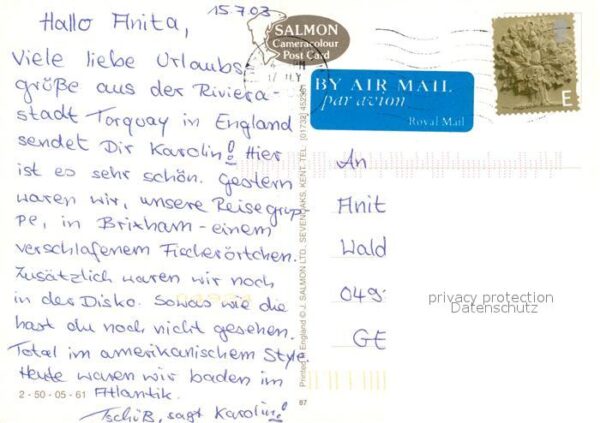 15.7.03
Hallo Anita,
Viele liebe Urlaubs
größe aus der Riviera-
stadt Torquay in England
sendet Dir Karolin! Hier
ist es sehr schön. Gestern
waren wir, unsere Reisegrup
pe, in Brixham - einem
verschlafenem Fischerörtchen.
Zusätzlich waren wir noch
in der Disko. Sowas wie die
hast du noch nicht gesehen.
Total im amerikanischem Style.
Heute waren wir baden im
Atlantik.
Tschüß, sagt Karolin!
2-50-05-61
87
SALMON
Cameracolour
Post Card
Printed in England © J. SALMON LTD., SEVENOAKS, KENT. TEL. (01732) 452381
BY AIR MAIL
par avion
Royal Mail
E
An
Anit
Wald
049
GE
privacy protection
Datenschutz